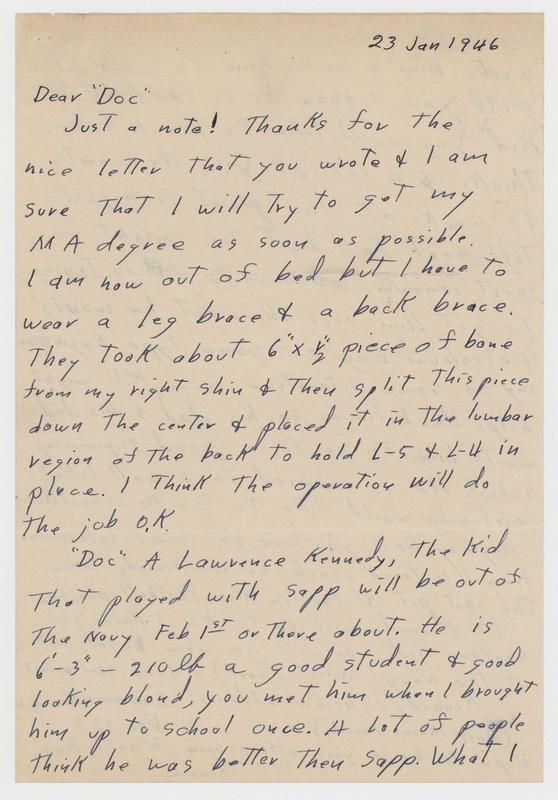 23 Jan 1946
Dear "Doc"
Just a note! Thanks for the
nice letter that you wrote & I am
sure that I will try to get my
M A degree as soon as possible.
I am now out of bed but I have to
wear a leg brace & a back brace.
They took about 6" x ½" piece of bone
from my right shin & then split this piece
down the center & placed it in the lumbar
region of the back to hold L-5 & L-4 in
place. I think the operation will do
the job O.K.
"Doc" A Lawrence Kennedy, the kid
that played with Sapp will be out of
the Navy Feb 1st or there about. He is
6'-3" - 210 lb a good student & good
looking blond, you met him when I brought
him up to school once. A lot of people
think he was better then Sapp. What I